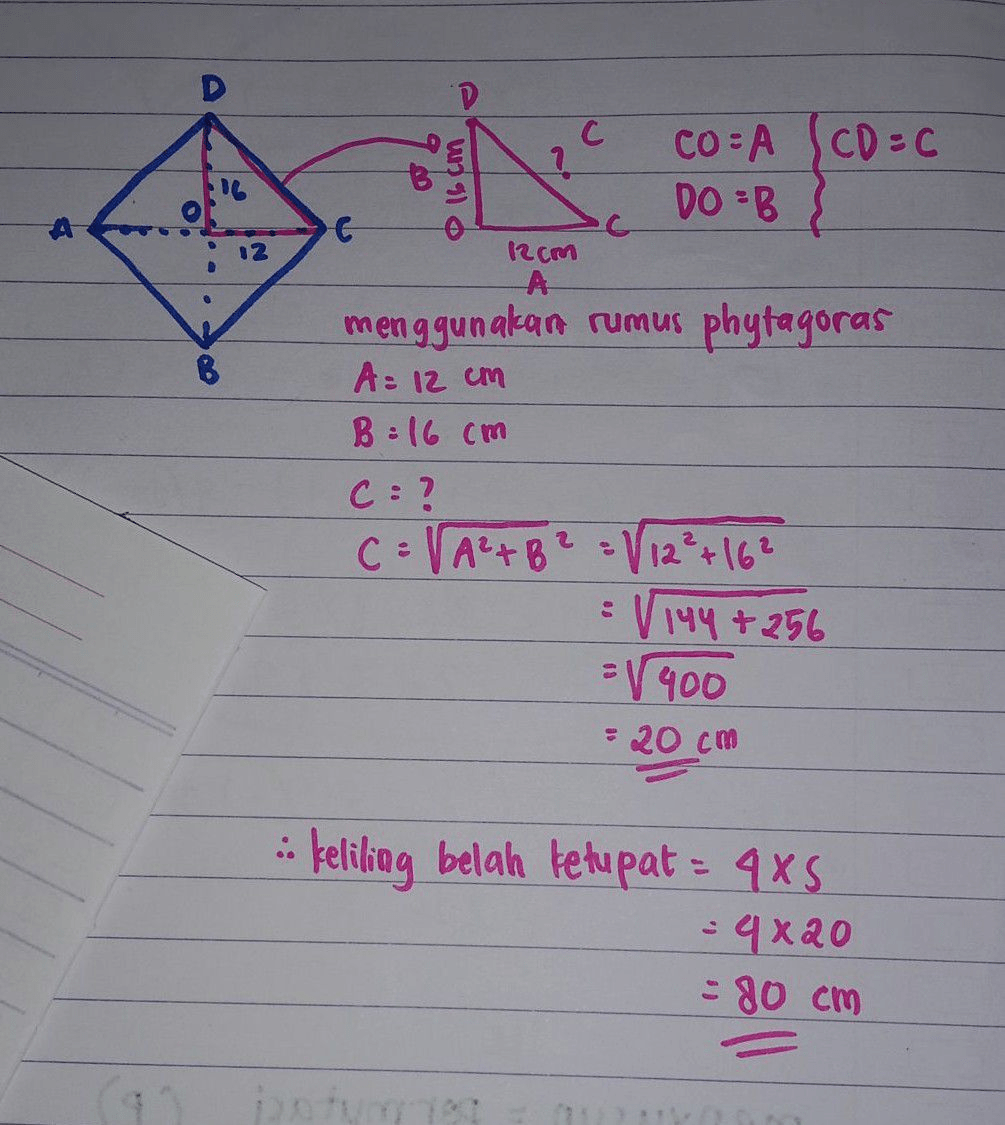 D
A
O
16
12
C
B
D
B
16 cm
?
C
O
C
12 cm
A
CO = A
DO = B
CD = C
menggunakan rumus phytagoras
A = 12 cm
B = 16 cm
C = ?
C = √A²+B² = √12²+16²
= √144 + 256
= √400
= 20 cm
∴ keliling belah ketupat = 4 x s
= 4 x 20
= 80 cm
= permutasi (P)